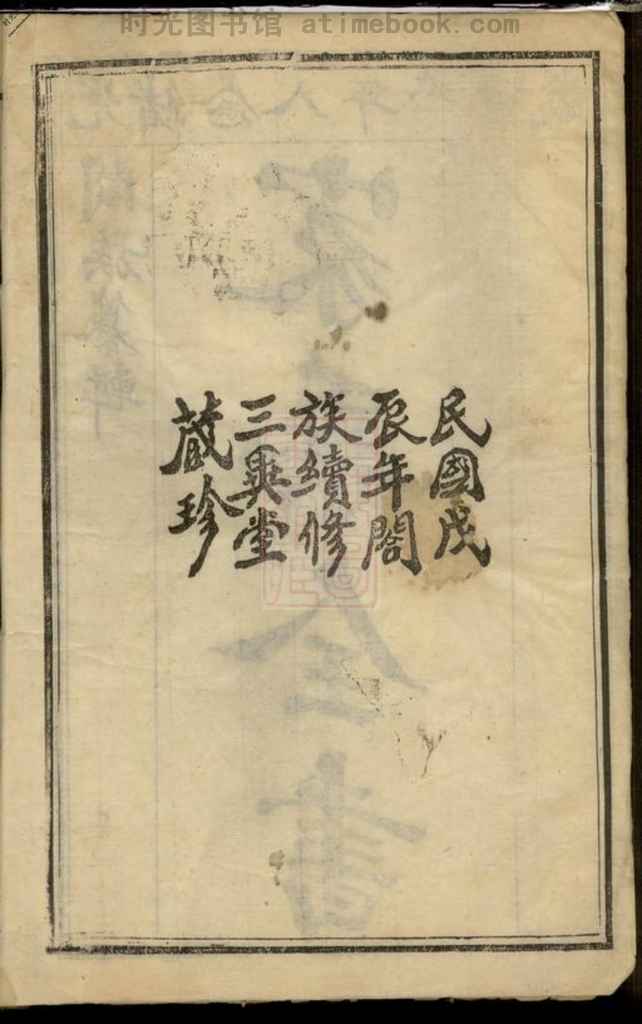 时光图书馆 atimebook.com
民國戊
辰年閤
族續修
三興堂
藏珍